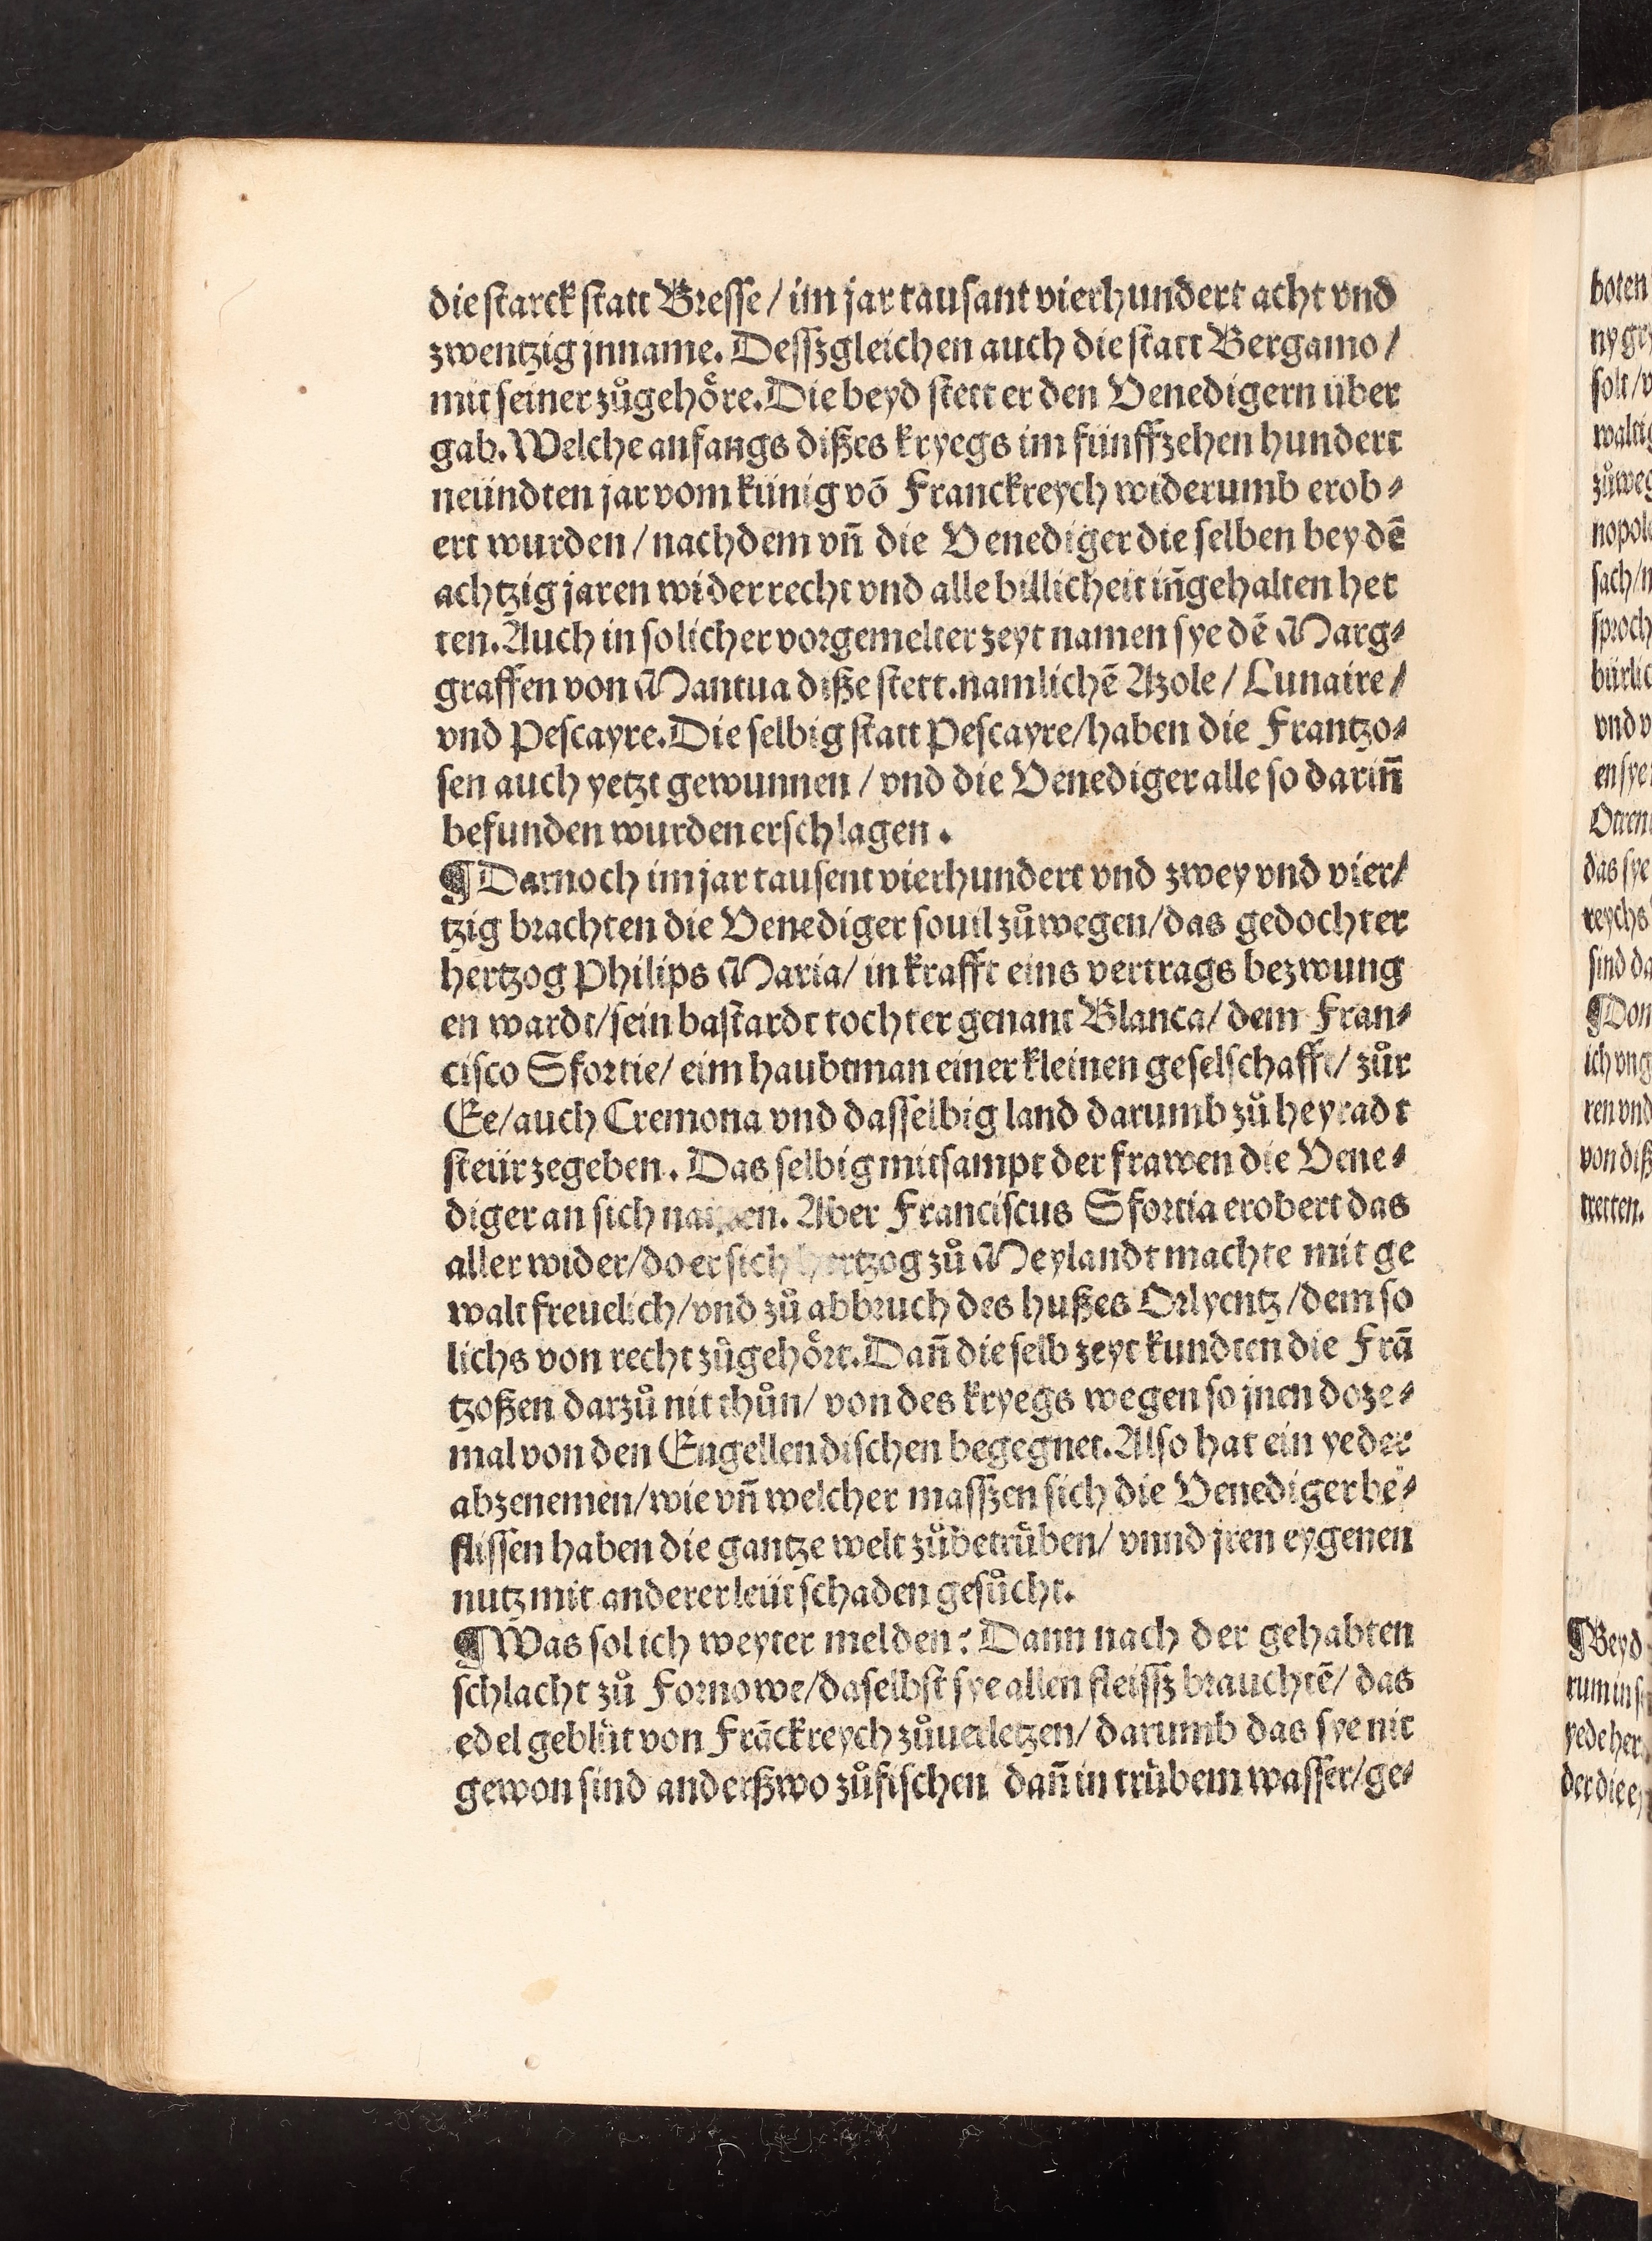 die starck statt Bresse / im jar tausant vierhundert acht vnd
zwentzig jnname. Dessʒgleichen auch die statt Bergamo /
mit seiner zůgehöre. Die beyd stett er den Venedigern über
gab. Welche anfangs dißes kryegs im fünffzehen hundert
neündten jar vom künig võ Franckreych widerumb erob⸗
ert wurden / nachdem vñ die Venediger die selben bey dẽ
achtzig jaren wider recht vnd alle billicheit iñgehalten het
ten. Auch in solicher vorgemelter zeyt namen sye dẽ Marg⸗
graffen von Mantua diße stett. namlichẽ Azole / Lunaire /
vnd Pescayre. Die selbig statt Pescayre / haben die Frantzo⸗
sen auch yetzt gewunnen / vnd die Venediger alle so dariñ
befunden wurden erschlagen.
¶ Darnoch im jar tausent vierhundert vnd zwey vnd vier⸗
tzig brachten die Venediger souil zůwegen / das gedochter
hertzog Philips Maria / in krafft eins vertrags bezwung
en wardt / sein bastardt tochter genant Blanca / dem Fran⸗
cisco Sfortie / eim haubtman einer kleinen geselschafft / zůr
Ee / auch Cremona vnd dasselbig land darumb zů heyradt
steür zegeben. Das selbig mitsampt der frawen die Vene⸗
diger an sich namen. Aber Franciscus Sfortia erobert das
aller wider / do er sich hertzog zů Meylandt machte mit ge
walt freuelich / vnd zů abbruch des hußes Orlyentz / dem so
lichs von recht zůgehört. Dañ die selb zeyt kundten die Frã
tzoßen darzů nit thůn / von des kryegs wegen so jnen doze⸗
mal von den Engellendischen begegnet. Also hat ein yeder
abzenemen / wie vñ welcher massʒen sich die Venediger be⸗
flissen haben die gantze welt zůbetrüben / vnnd jren eygenen
nutz mit anderer leüt schaden gesůcht.
¶ Was sol ich weyter melden: Dann nach der gehabten
schlacht zů Fornowe / daselbst sye allen fleissʒ brauchtẽ / das
edel geblüt von Frãckreych zůuerletzen / darumb das sye nit
gewon sind anderßwo zůfischen dañ in trübem wasser / ge⸗
boten
solt / v
nopol
sach / n
sproch
bürlic
vnd v
en sye
das sye
reychs
sind da
¶ Don
ich vng
ren vnd
von diß
tretten.
¶ Beyd
rum in s
rede her
der die e